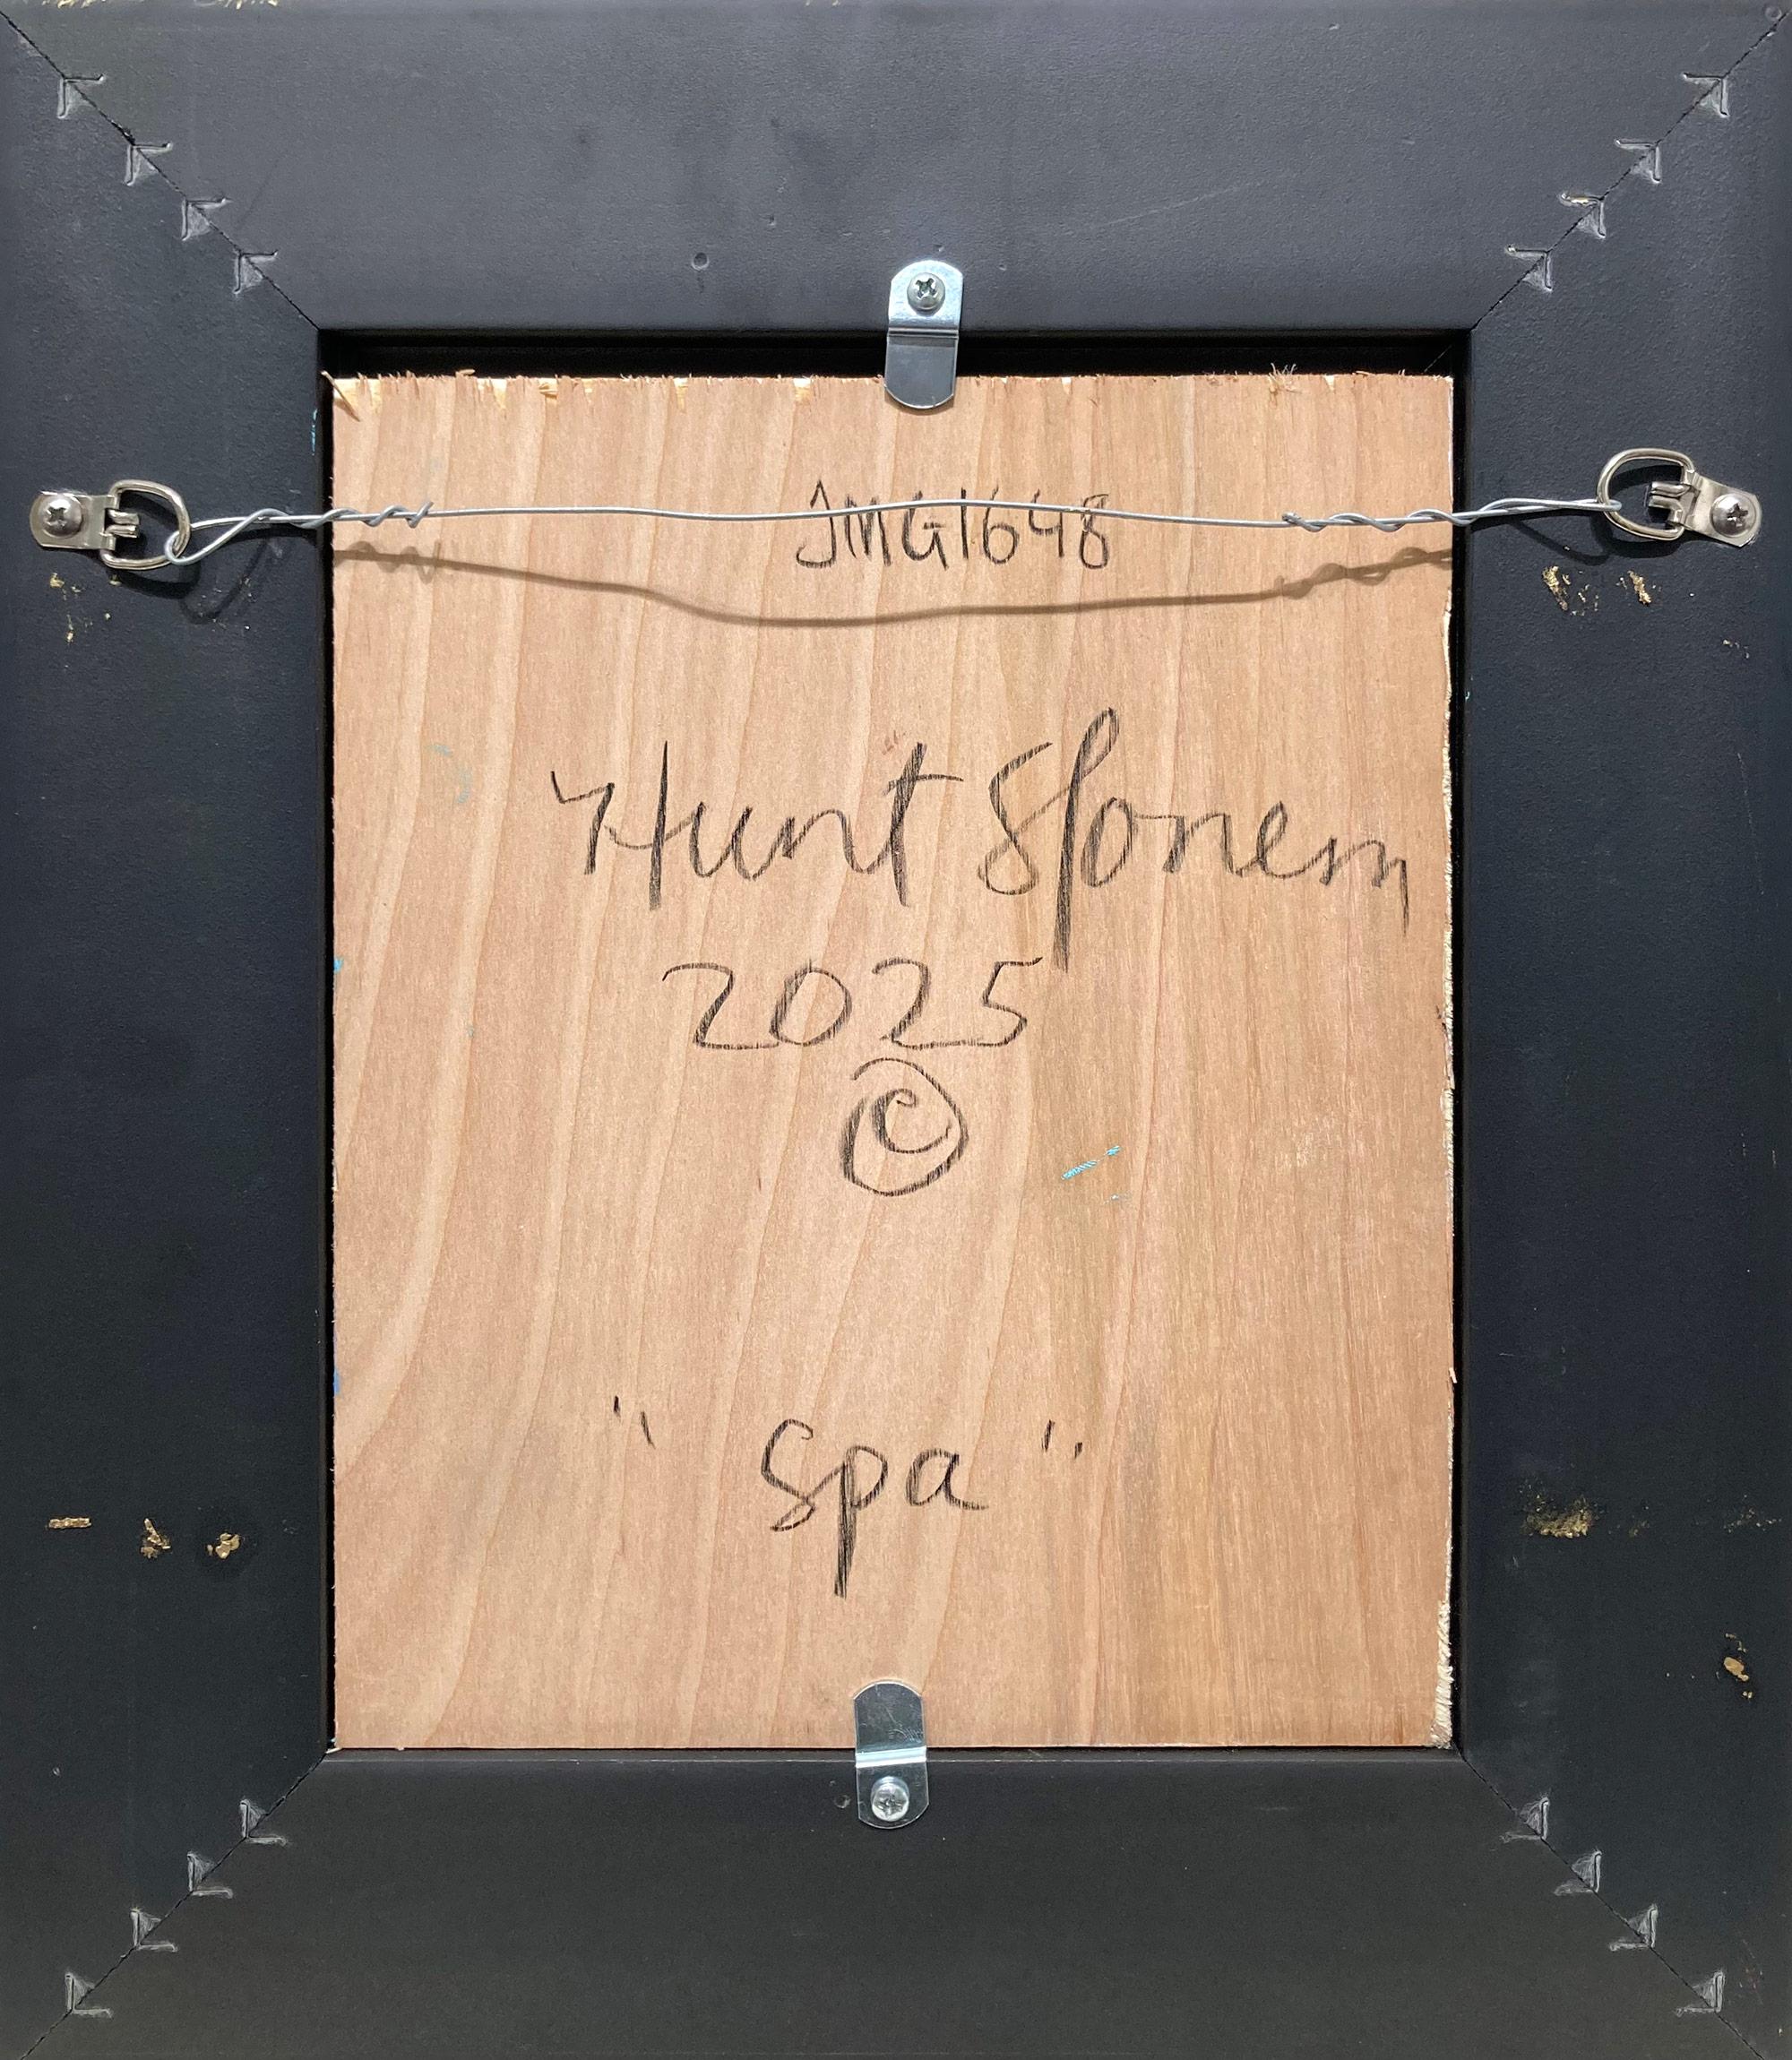 JMG1648
Hunt Slonem
2025
©
" Spa "